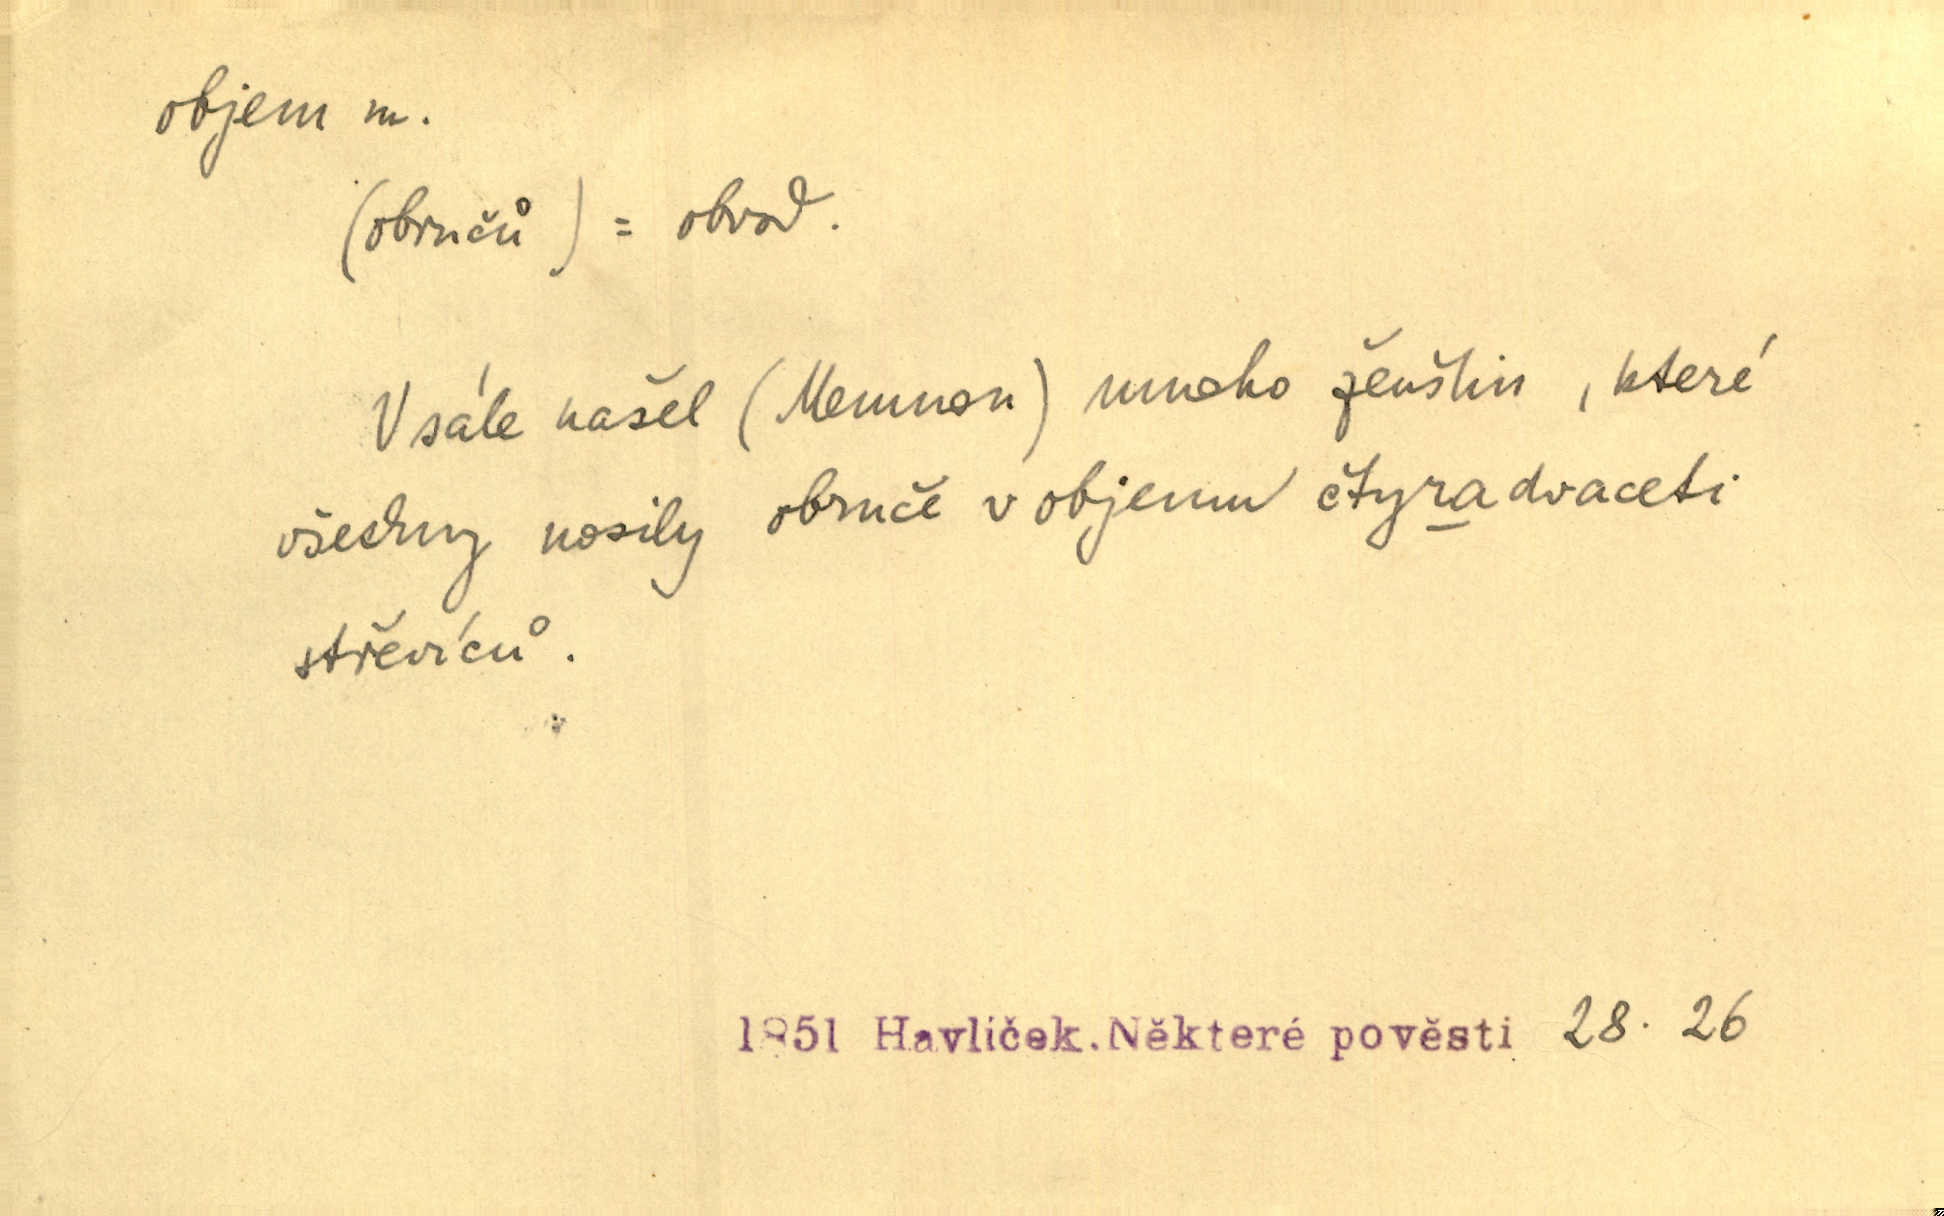 objem m.
(obručů) = obvod.
V sále našel (Memnon) mnoho ženštin, které
všechny nosily obruče v objemu čtyradvaceti
střevíců.
1851 Havlíček. Některé pověsti 28. 26